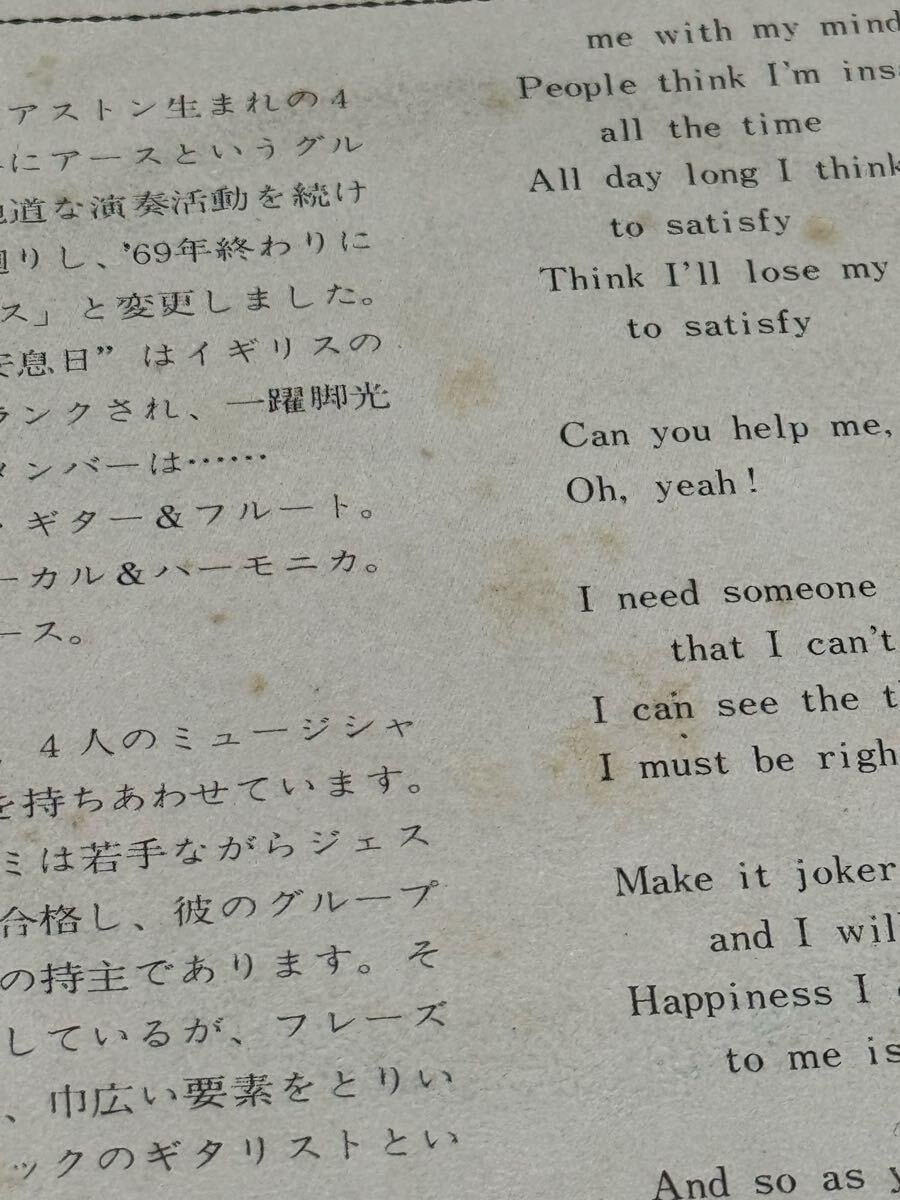 アストン生まれの4
にアースというグル
地道な演奏活動を続け
りし、'69年終わりに
ス」と変更しました。
安息日”はイギリスの
ランクされ、一躍脚光
メンバーは……
ギター&フルート。
ーカル&ハーモニカ。
ース。
4人のミュージシャ
を持ちあわせています。
ミは若手ながらジェス
合格し、彼のグループ
の持主であります。そ
しているが、フレーズ
、巾広い要素をとりい
ックのギタリストとい
me with my mind
People think I'm insa
all the time
All day long I think
to satisfy
Think I'll lose my
to satisfy
Can you help me,
Oh, yeah!
I need someone
that I can't
I can see the th
I must be righ
Make it joker
and I will
Happiness I
to me is
And so as y